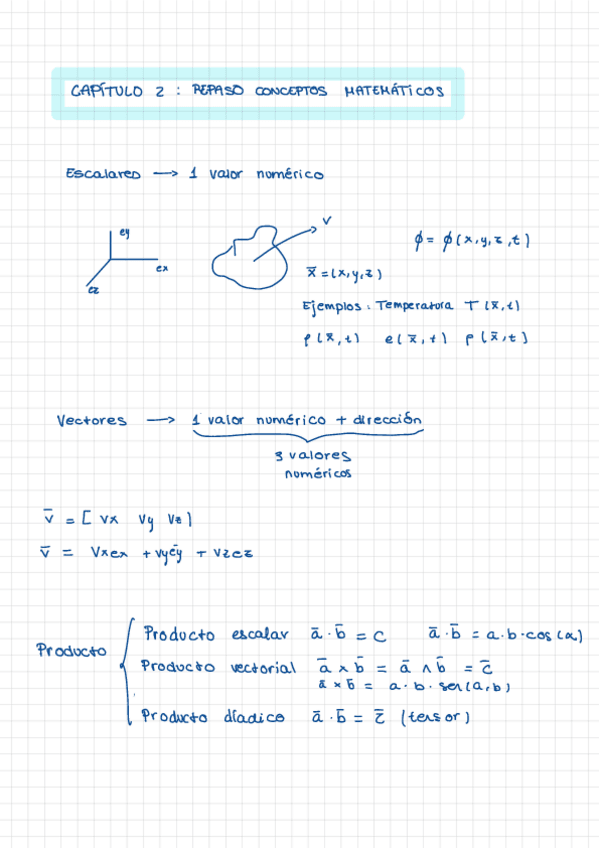 CAPÍTULO 2 : REPASO CONCEPTOS MATEMÁTICOS
Escalares → 1 valor numérico
ey
ex
ez
V
ϕ = ϕ (x, y, z, t)
x̄ = (x, y, z)
Ejemplos: Temperatura T (x̄, t)
ρ (x̄, t) e (x̄, t) p (x̄, t)
Vectores → 1 valor numérico + dirección
3 valores
numéricos
v̄ = [ vx vy vz ]
v̄ = vxex + vyēy + vzez
Producto
Producto escalar ā · b̄ = c ā · b̄ = a · b · cos (α)
Producto vectorial ā x b̄ = ā ∧ b̄ = c̄
ā x b̄ = a · b · sen (a, b)
Producto díadico ā · b̄ = c̿ (tensor)